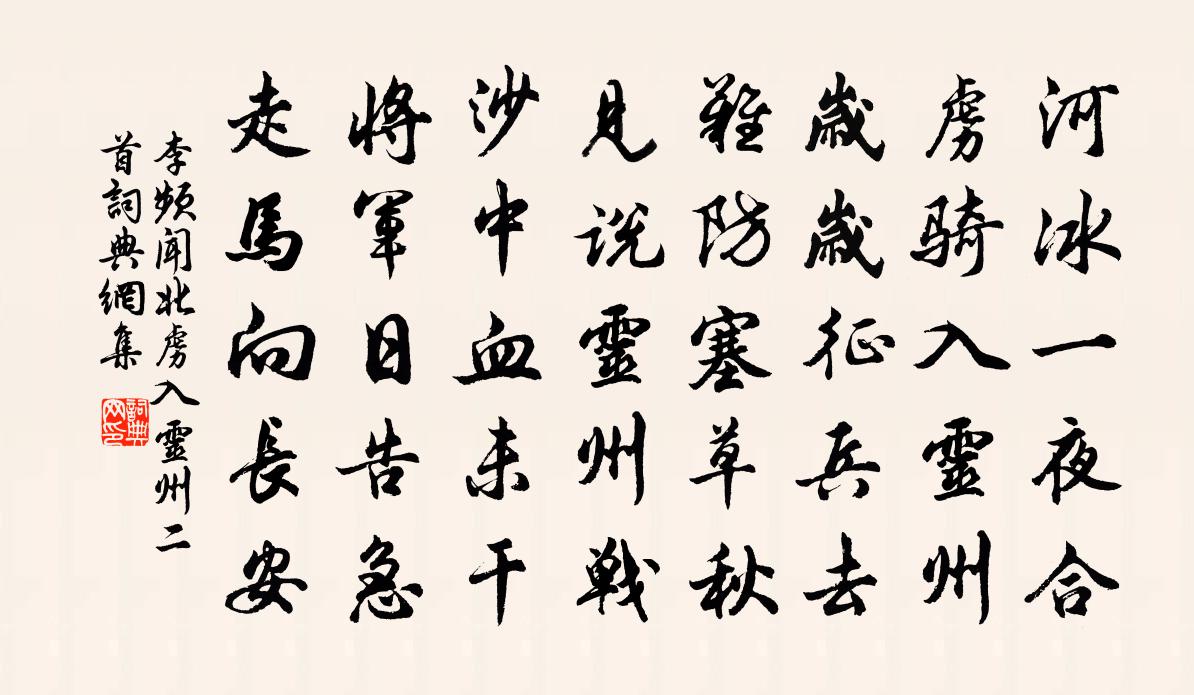 河冰一夜合
虜騎入靈州
歲歲征兵去
難防塞草秋
見說靈州戰
沙中血未干
將軍日告急
走馬向長安
李頻聞北虜入靈州二
首詞典網集
詞典网印